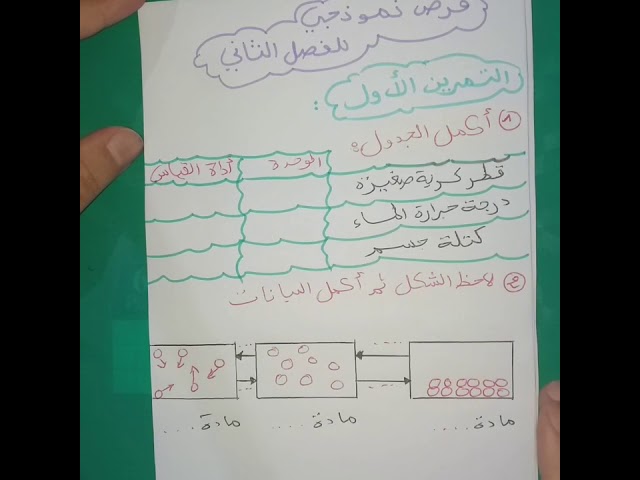 فرض نموذجي
للفصل الثاني
التمرين الأول :
① أكمل الجدول:
الوحدة أداة القياس
قطر كرية صغيرة
درجة حرارة الماء
كتلة جسم
② لاحظ الشكل ثم أكمل البيانات
.... ....
.... ....
مادة.... مادة.... مادة....